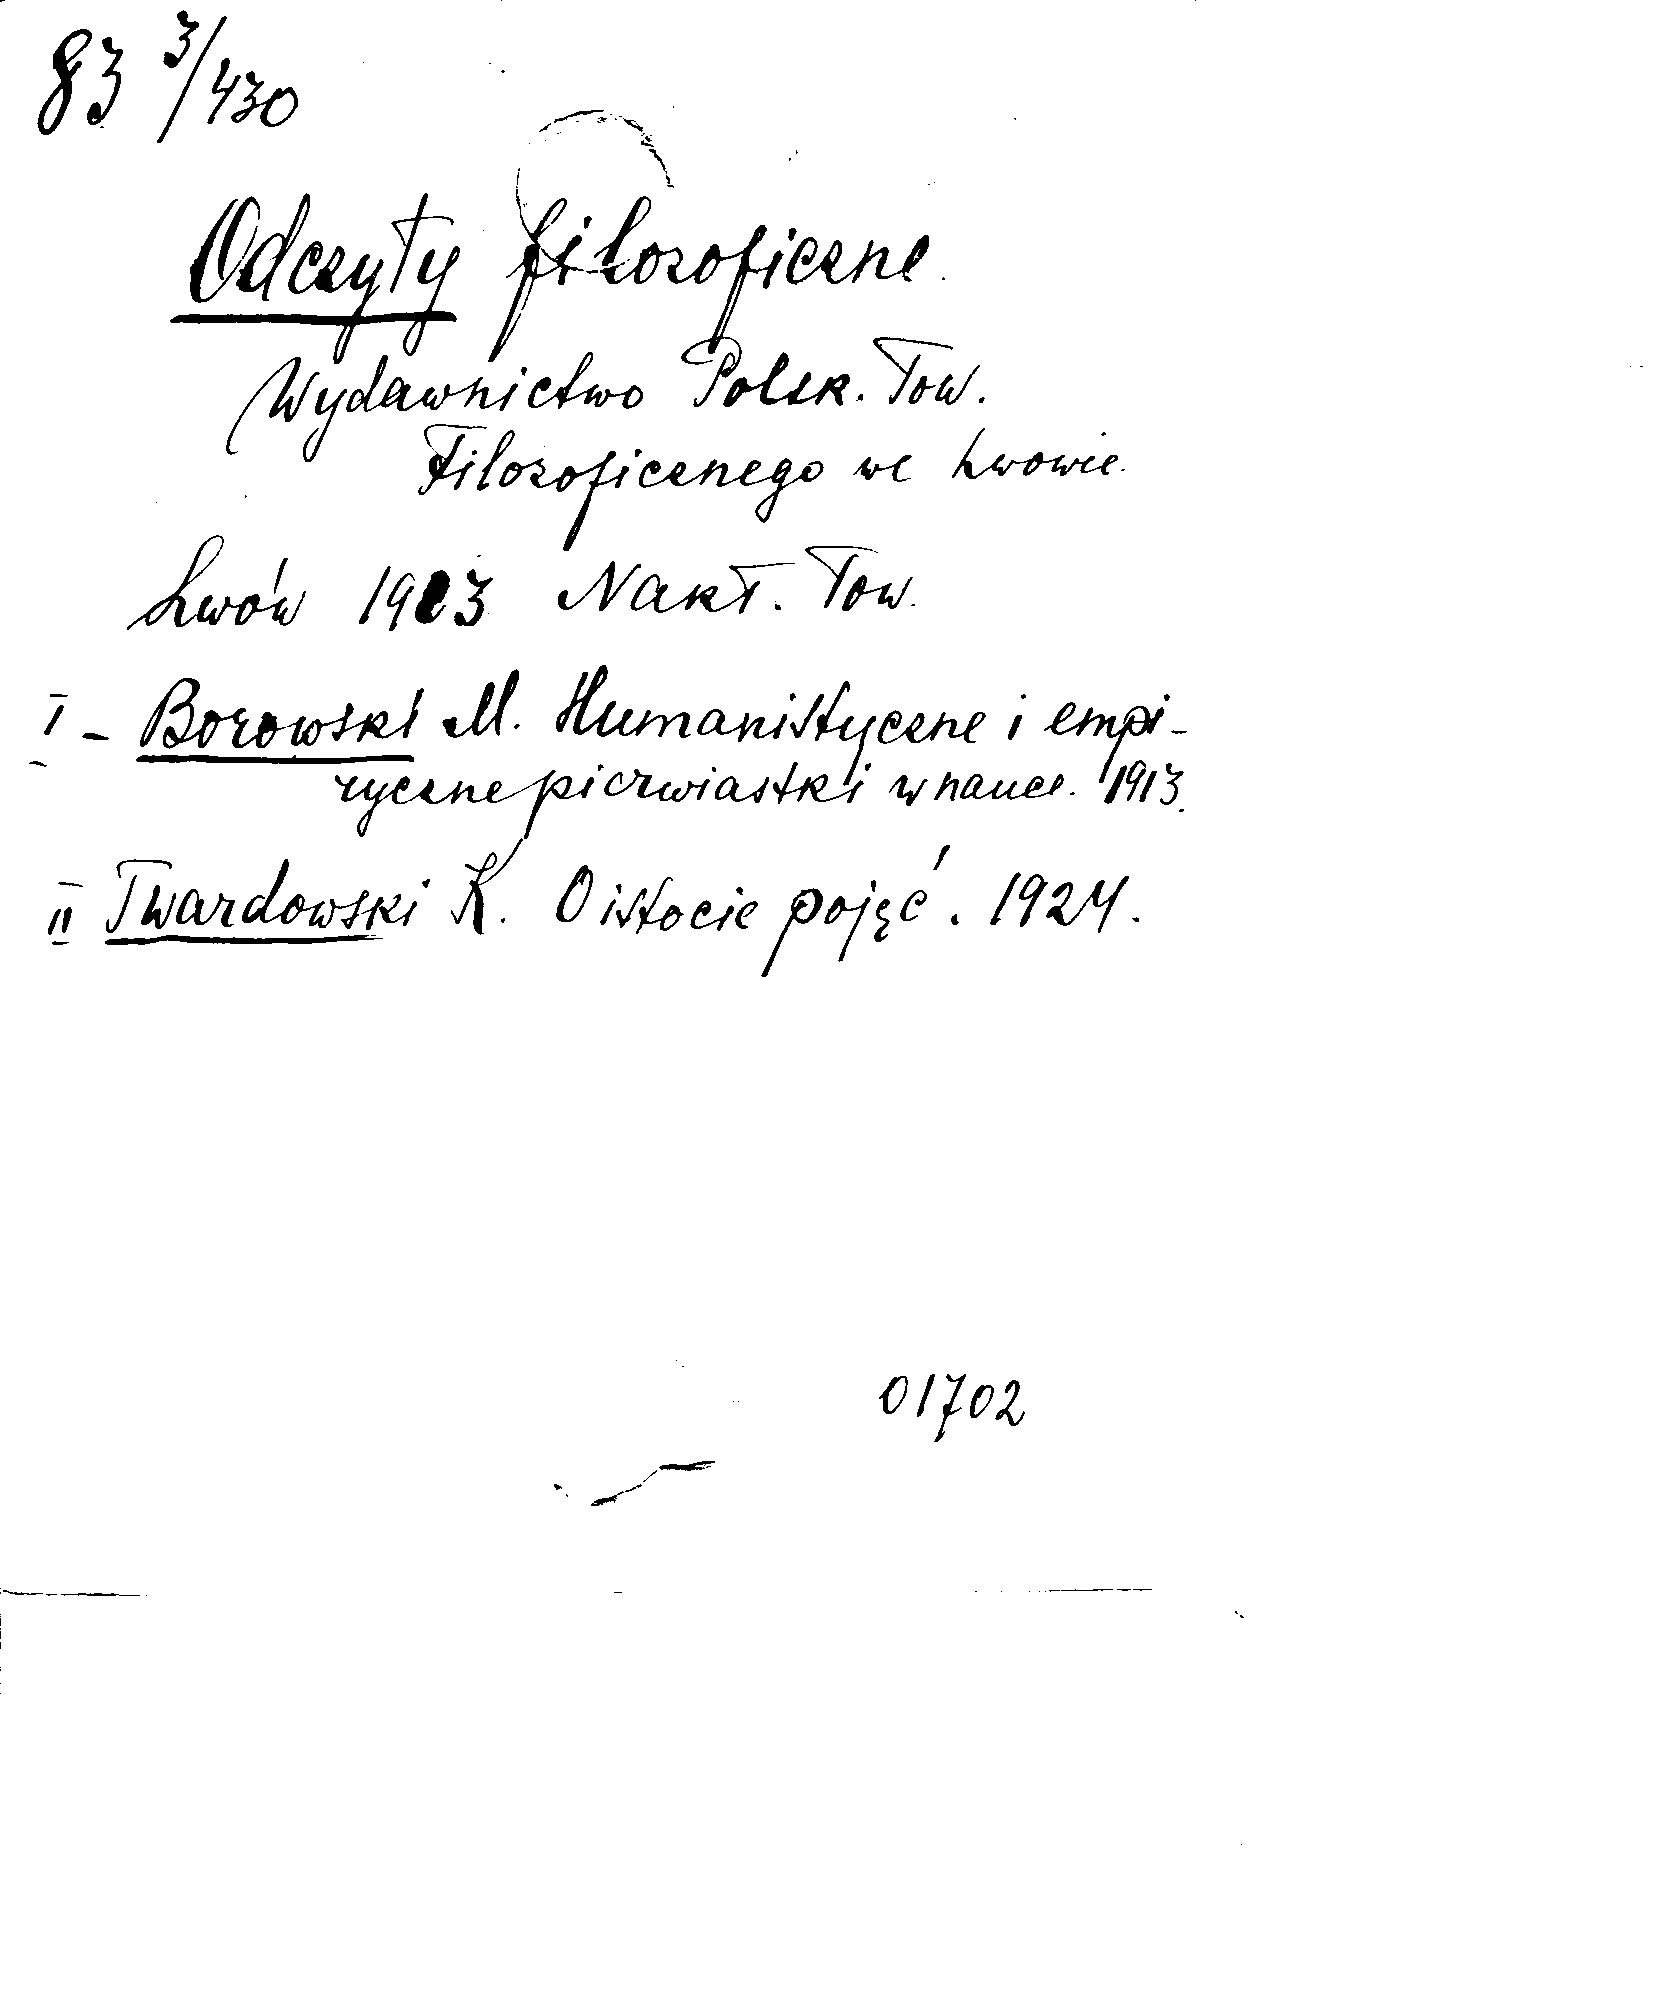 83 3/430
Odczyty filozoficzne.
Wydawnictwo Polsk. Tow.
Filozoficznego we Lwowie.
Lwów 1913 Nakł. Tow.
I - Borowski M. Humanistyczne i empi-
ryczne pierwiastki w nauce. 1913.
II Twardowski K. O istocie pojęć. 1924.
01702